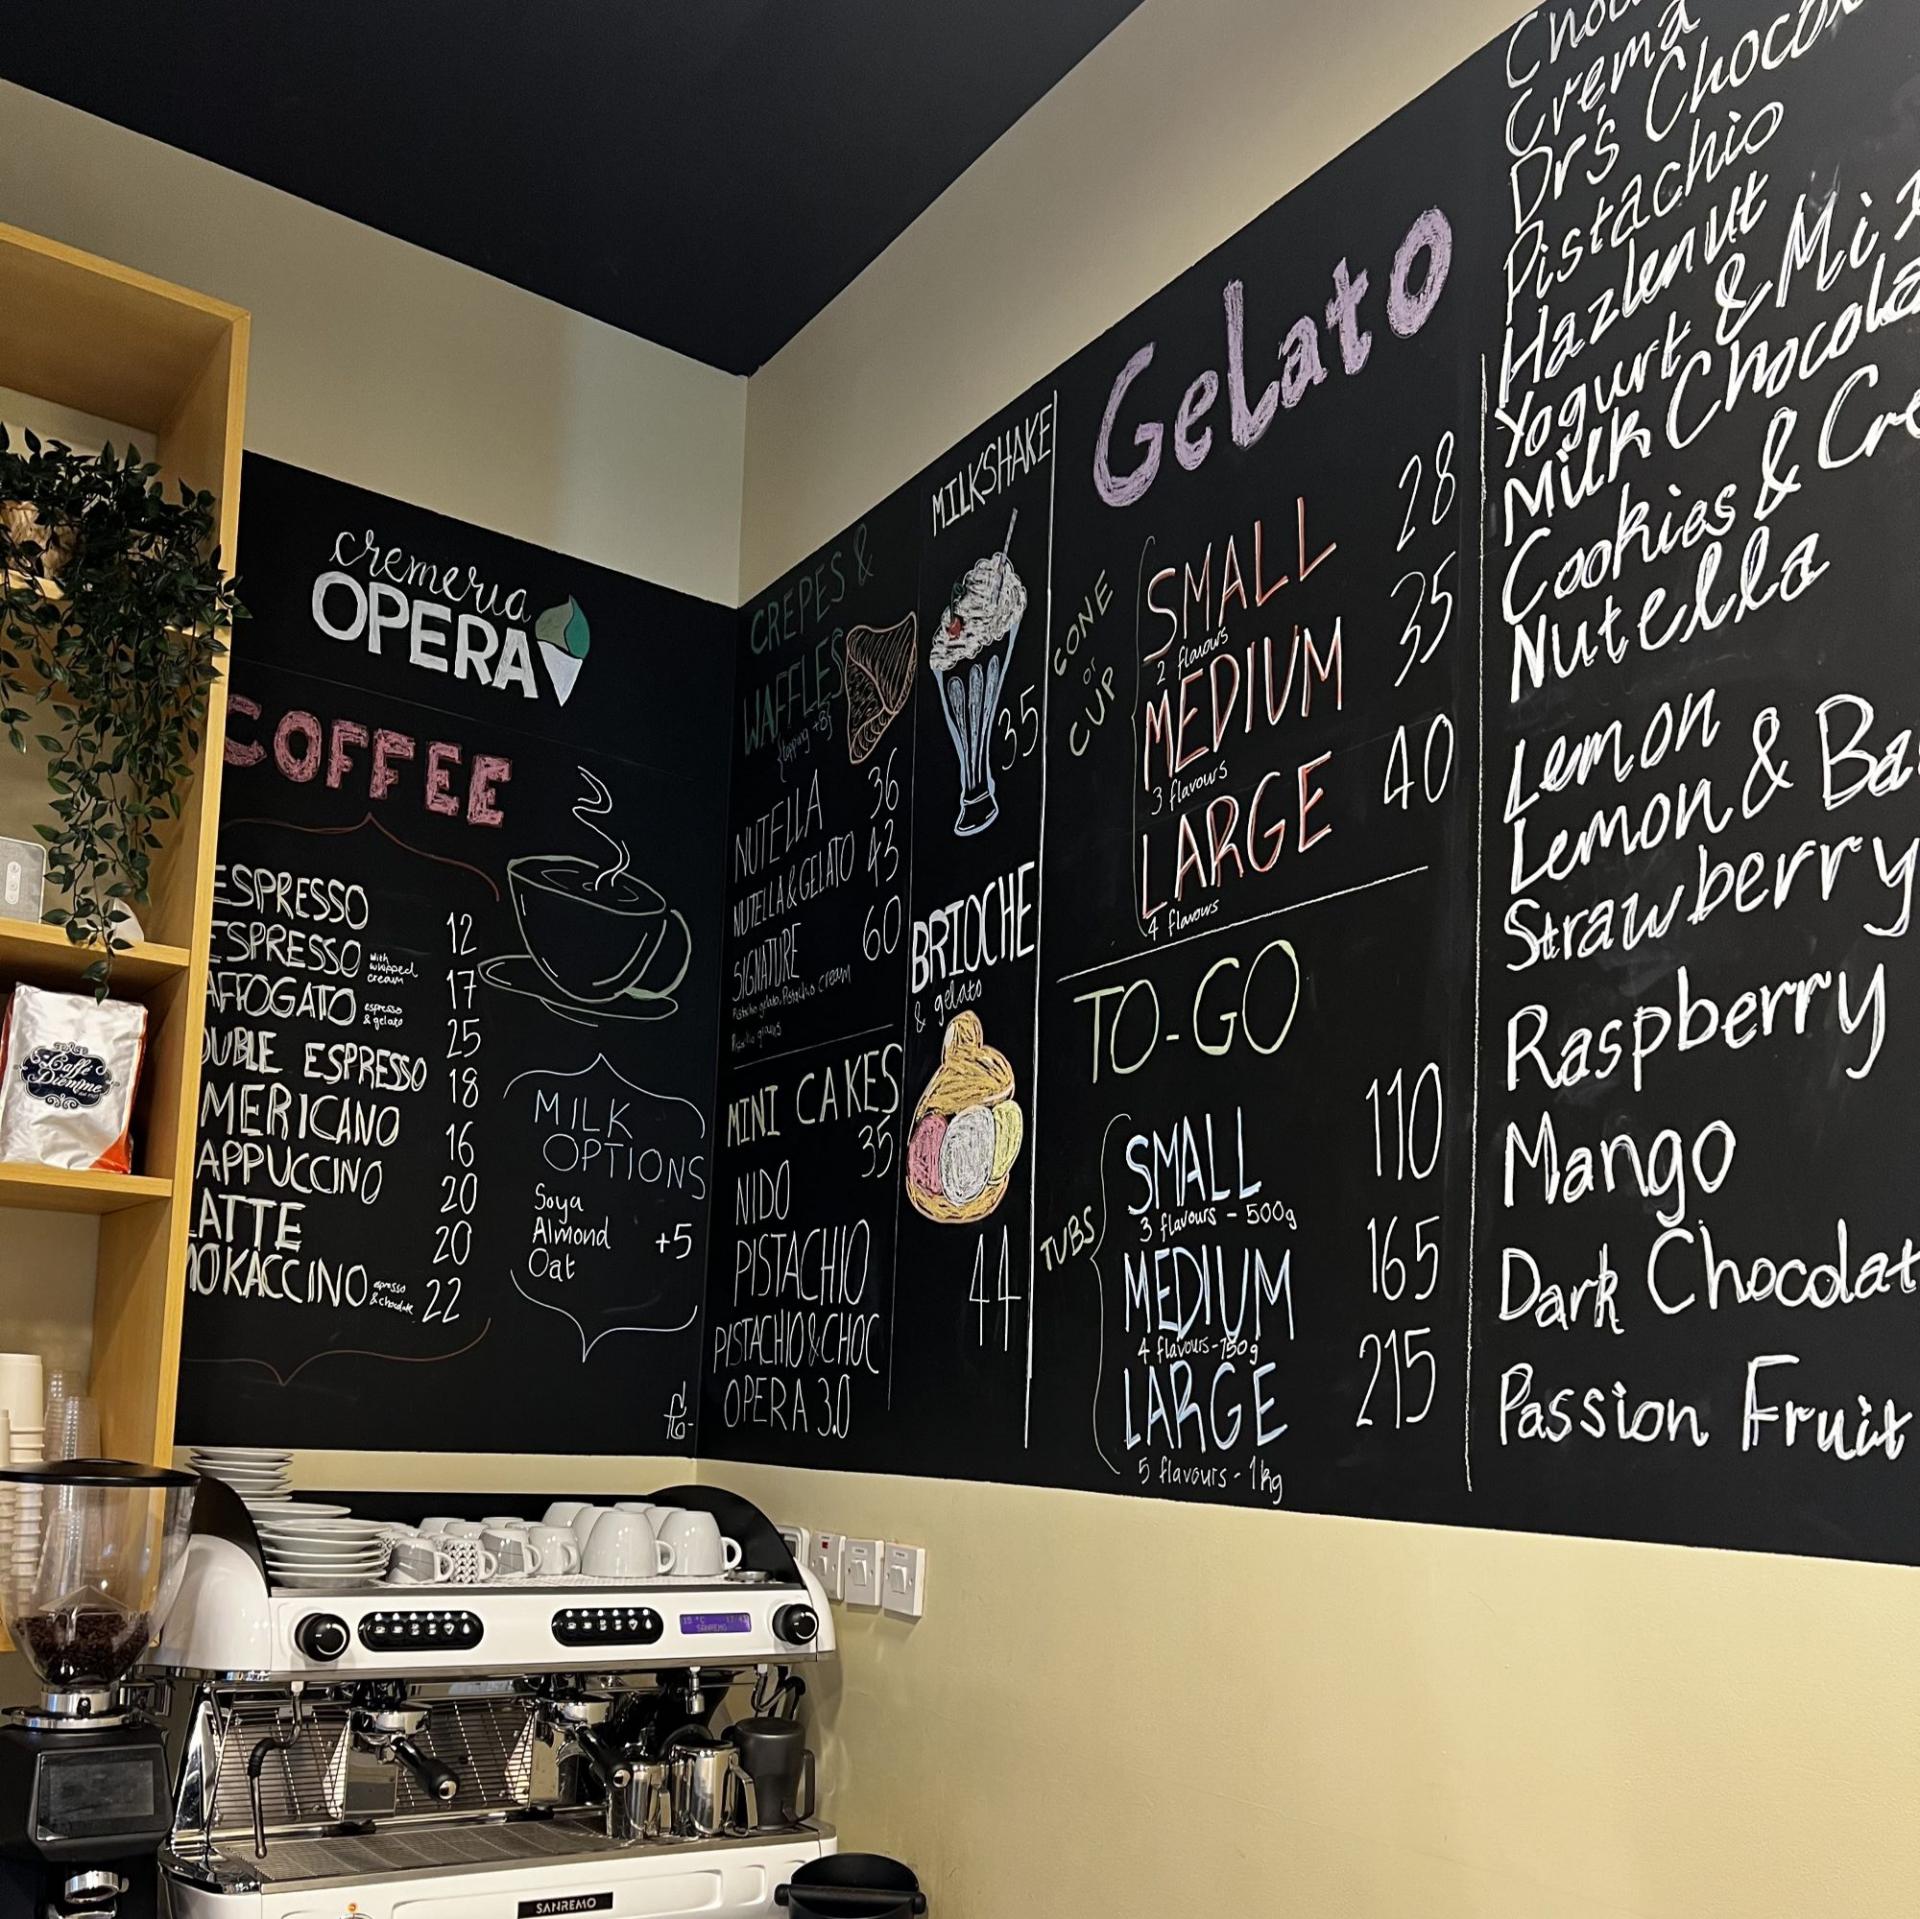 cremeria
OPERA
COFFEE
ESPRESSO 12
ESPRESSO with whipped cream 17
AFFOGATO espresso & gelato 25
OUBLE ESPRESSO 18
MERICANO 16
APPUCCINO 20
LATTE 20
MOKACCINO espresso & chocolate 22
MILK
OPTIONS
Soya
Almond +5
Oat
CREPES &
WAFFLES
NUTELLA 36
NUTELLA & GELATO 43
SIGNATURE 60
Pistachio gelato, Pistachio cream
MINI CAKES
35
NIDO
PISTACHIO
PISTACHIO & CHOC
OPERA 3.0
MILKSHAKE
35
BRIOCHE
& gelato
44
Gelato
CONE
or
CUP
SMALL 28
2 flavours
MEDIUM 35
3 flavours
LARGE 40
4 flavours
TO-GO
TUBS
SMALL 110
3 flavours - 500g
MEDIUM 165
4 flavours - 750g
LARGE 215
5 flavours - 1kg
Crema
Dr's Choco
Pistachio
Hazlenut
Yogurt & Mix
Milk Chocola
Cookies & Cre
Nutella
Lemon
Lemon & Ba
Strawberry
Raspberry
Mango
Dark Chocolat
Passion Fruit
Caffè
Diemme
SANREMO